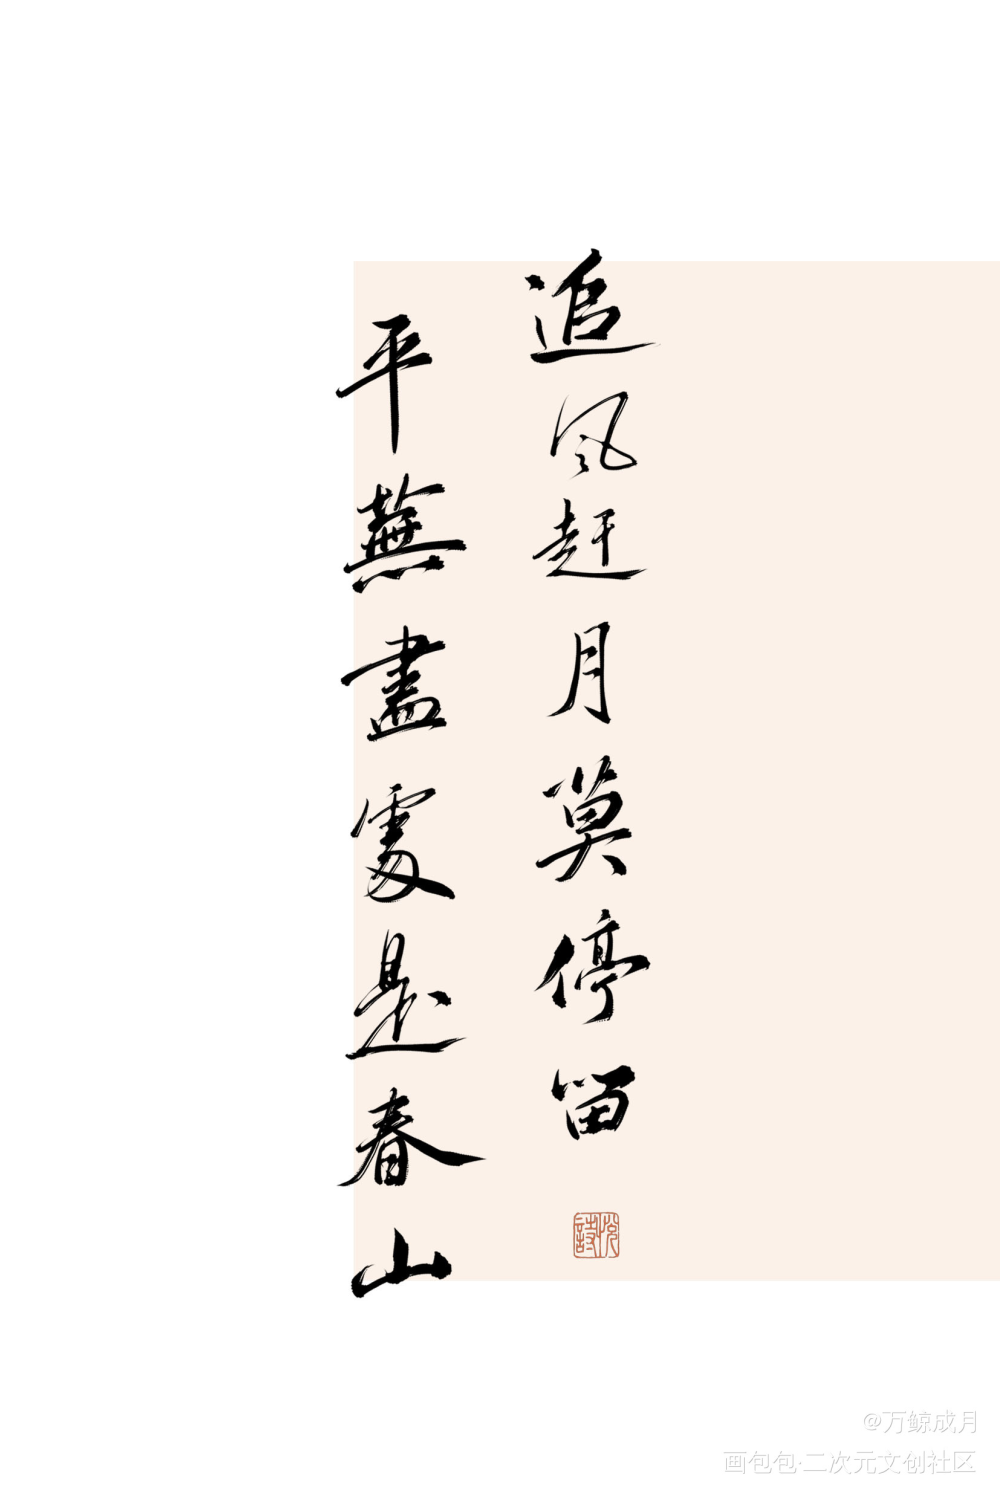 追风赶月莫停留
平蕪盡處是春山
悅詩
@万鲸成月
画包包·二次元文创社区